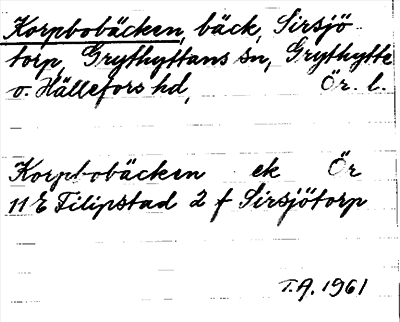 Korpbobäcken, bäck, Sirsjö-
torp, Grythyttans sn, Grythytte
o. Hällefors hd, Ör. l.
Korpbobäcken ek Ör
11 E Filipstad 2 f Sirsjötorp
T.A. 1961